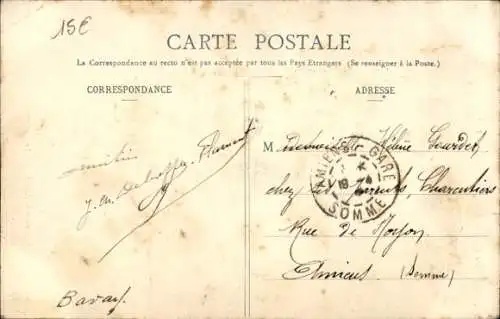 15€
CARTE POSTALE
La Correspondance au recto n'est pas acceptée par tous les Pays Etrangers (Se renseigner à la Poste.)
CORRESPONDANCE
ADRESSE
amitié
J. M.
Bavay
Mademoiselle Hélène Gourdet
chez ses Parents, Charcutiers
Rue de Noyon
Amiens (Somme)
AMIENS GARE
SOMME